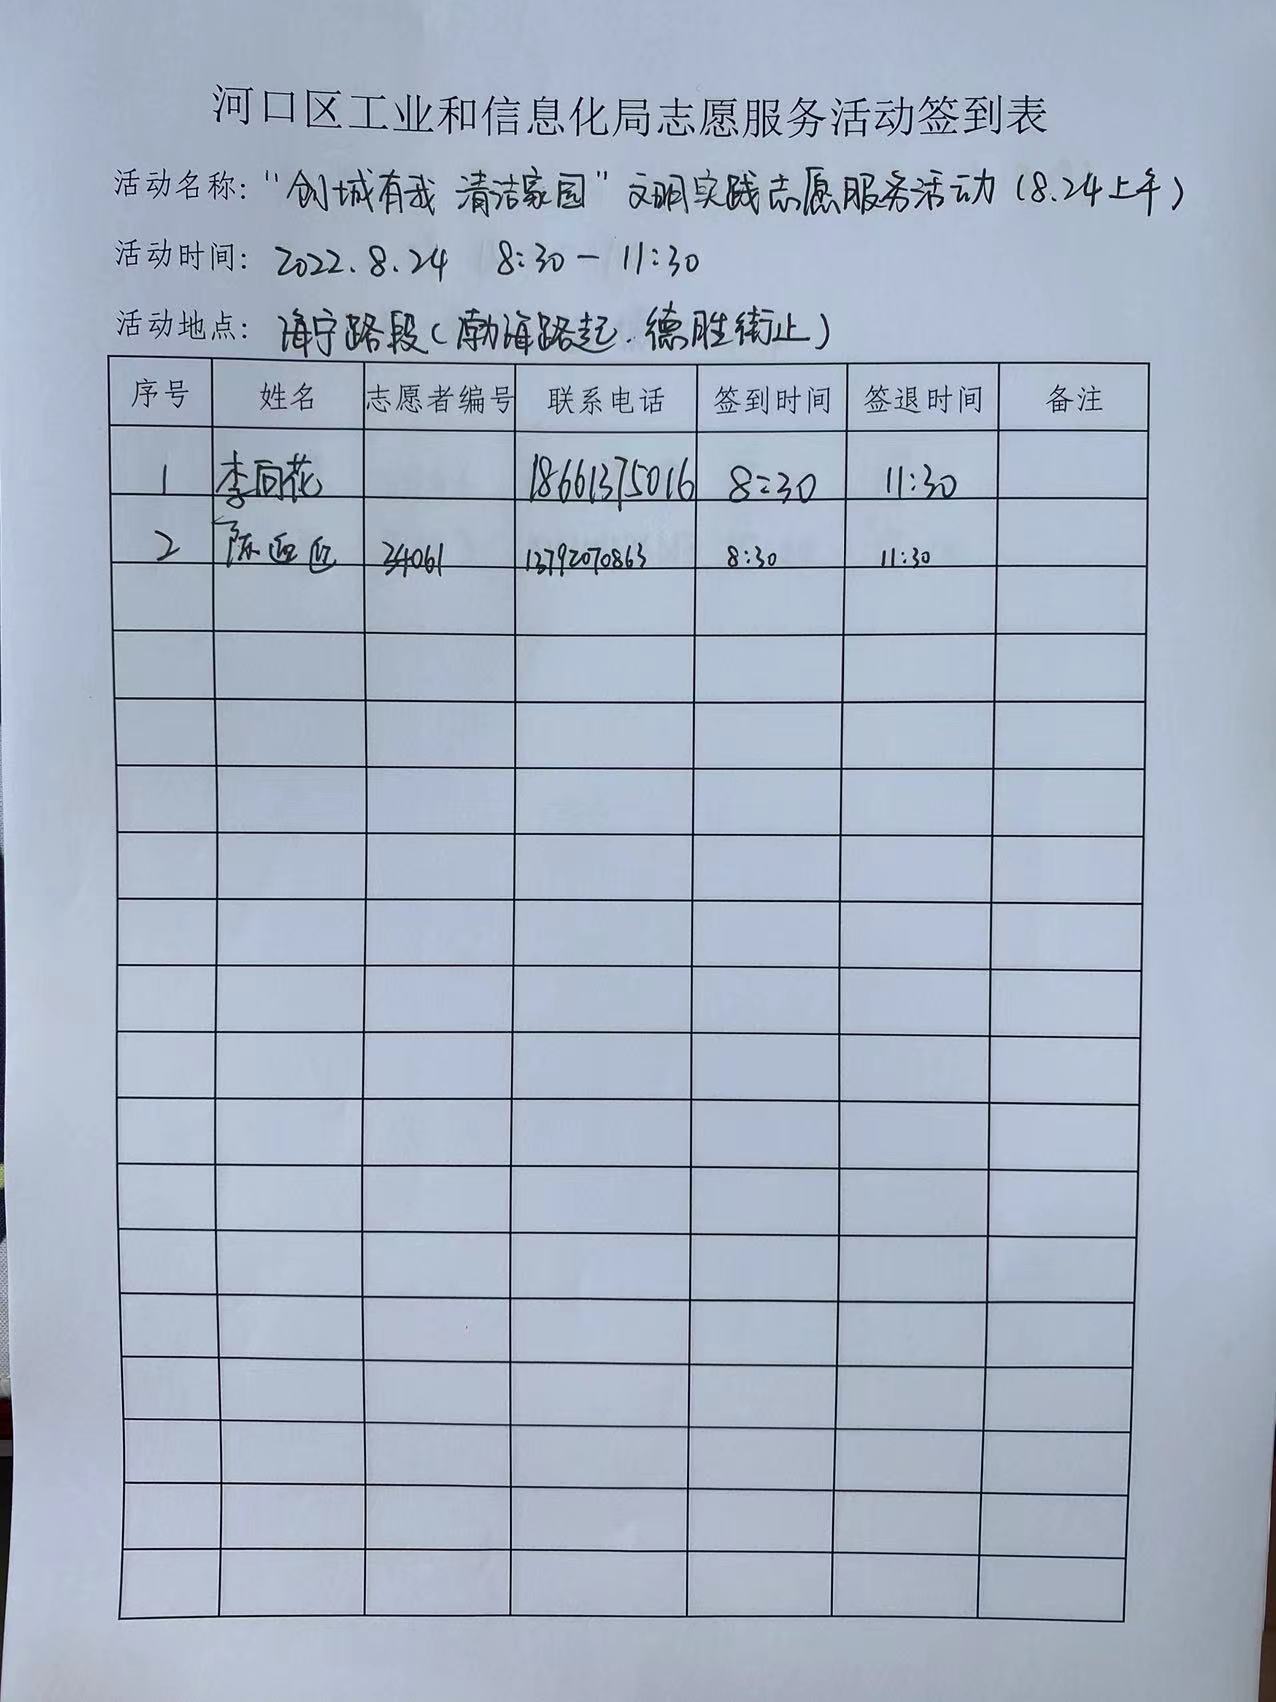 河口区工业和信息化局志愿服务活动签到表
活动名称: "创城有我 清洁家园" 文明实践志愿服务活动 (8.24上午)
活动时间: 2022.8.24 8:30 — 11:30
活动地点: 海宁路段(渤海路起.德胜街止)
序号 姓名 志愿者编号 联系电话 签到时间 签退时间 备注
1 李向花 18661375016 8:30 11:30
2 陈 34061 13792070863 8:30 11:30